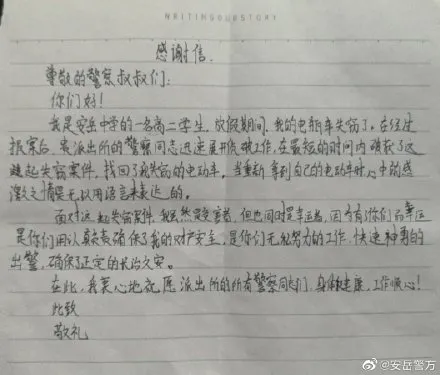 WRITINGOURSTORY
感谢信
尊敬的警察叔叔们：
你们好！
我是安岳中学的一名高二学生，放假期间，我的电瓶车失窃了。在经过
报案后，贵派出所的警察同志迅速展开侦破工作，在最短的时间内侦破了这
起失窃案件，找回了我失窃的电动车，当重新拿到自己的电动车时心中的感
激之情是无以用语言来表达的。
面对这一起失窃案件，我虽然是受害者，但也同时是幸运者，因为有了你们而幸运
是你们用认真负责确保了我的财产安全，是你们无私努力的工作，快速神勇的
出警，确保了正定的长治久安。
在此，我衷心地祝愿派出所的所有警察同志们，身体健康，工作顺心！
此致
敬礼
@安岳警方